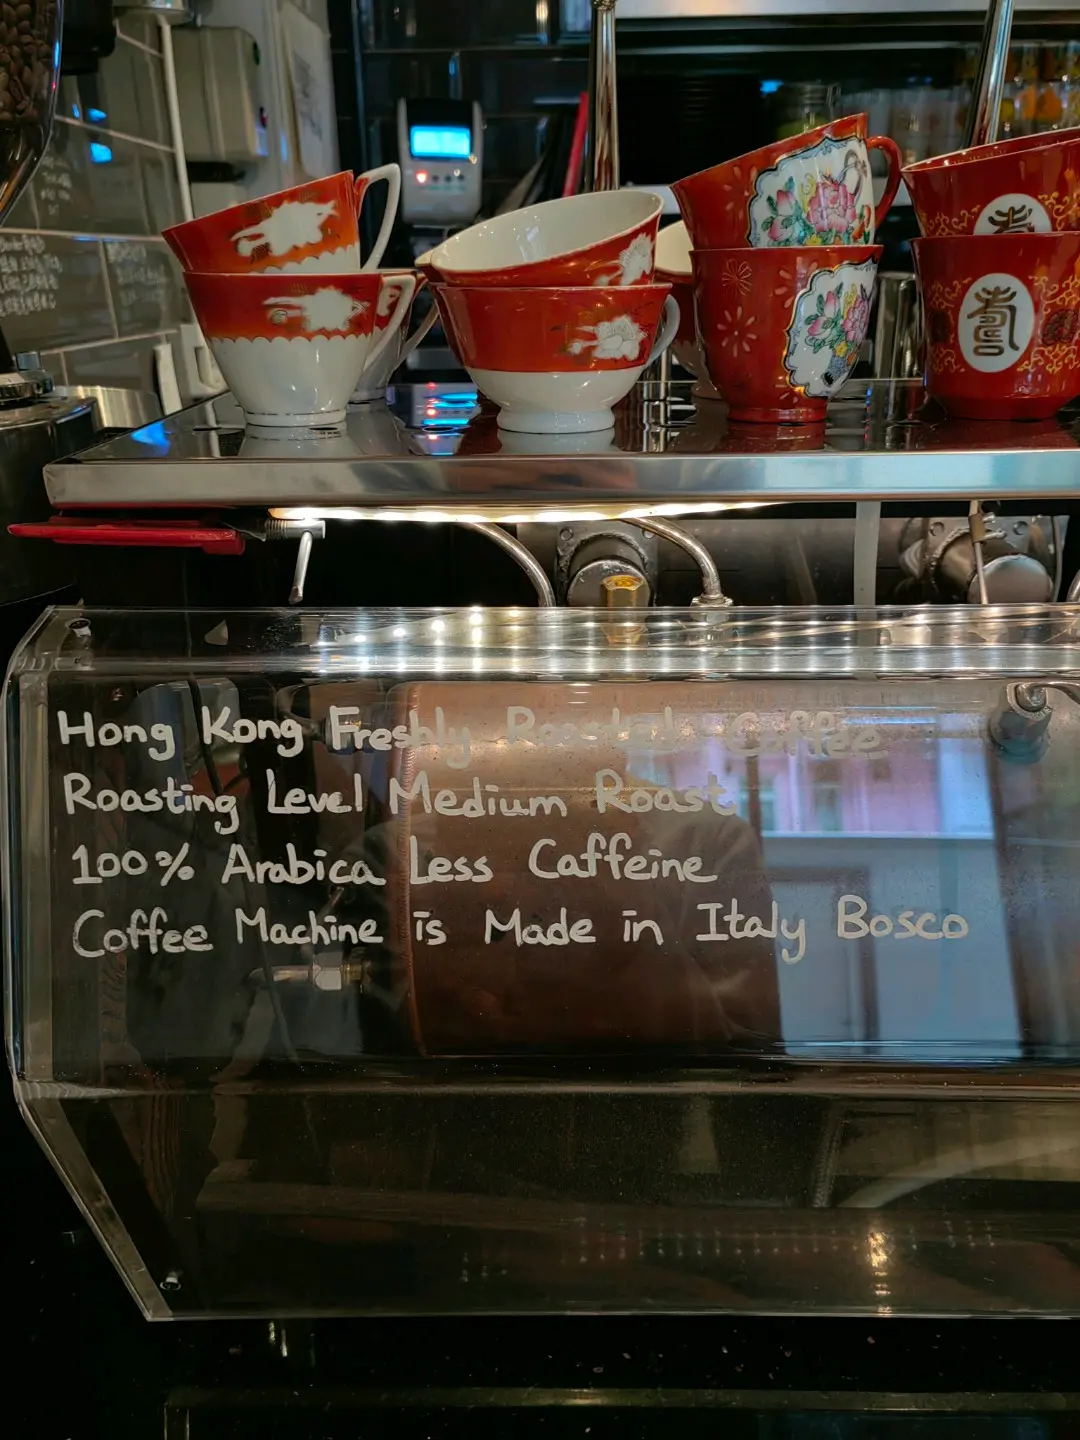 Hong Kong Freshly Roasted Coffee
Roasting Level Medium Roast
100% Arabica Less Caffeine
Coffee Machine is Made in Italy Bosco